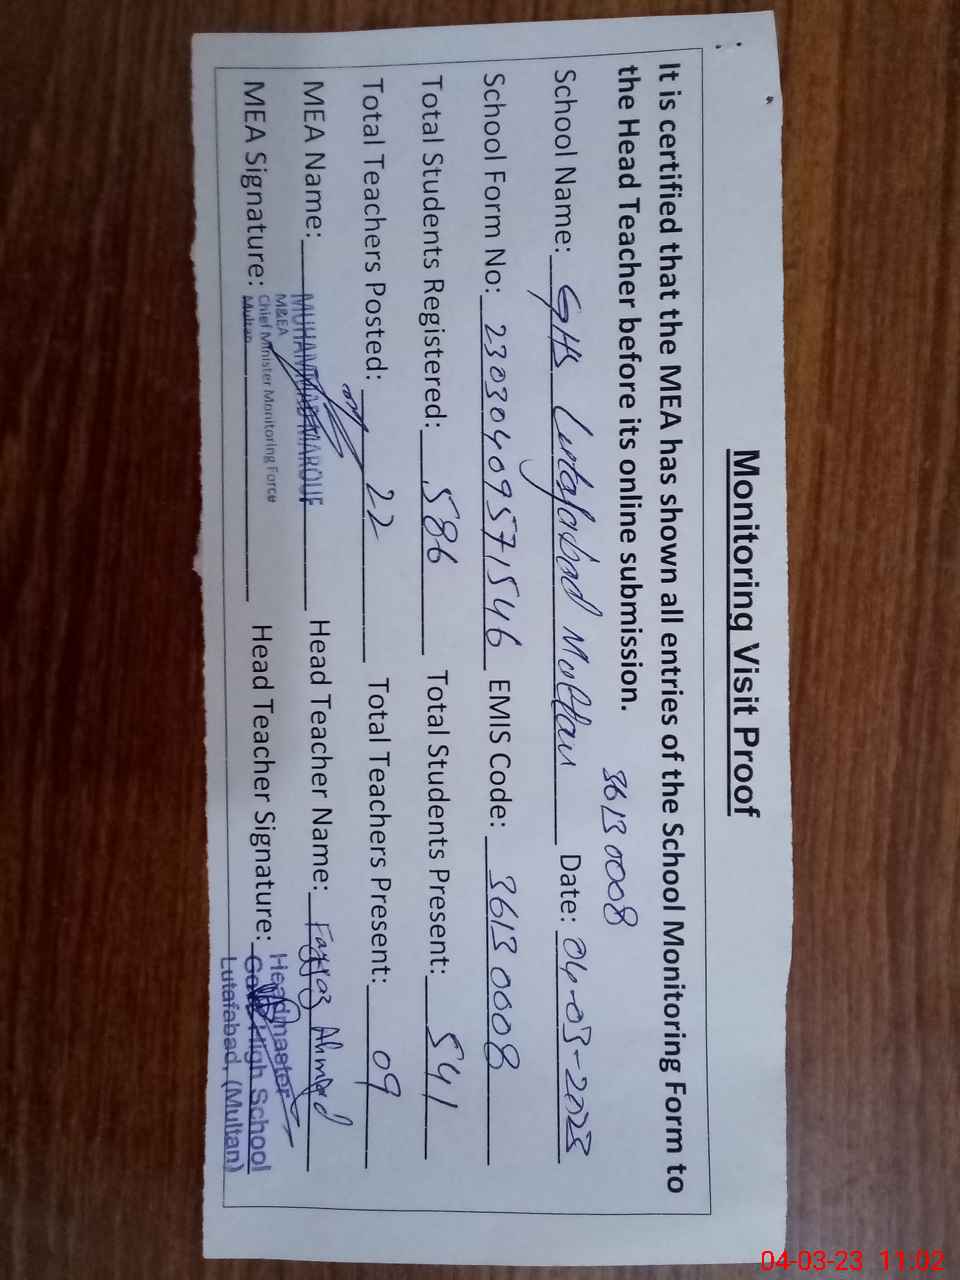 Monitoring Visit Proof
It is certified that the MEA has shown all entries of the School Monitoring Form to
the Head Teacher before its online submission.
36130008
School Name: GHS Lutafabad Multan Date: 04-03-2023
School Form No: 23030409571546 EMIS Code: 36130008
Total Students Registered: 586 Total Students Present: 541
Total Teachers Posted: 22 Total Teachers Present: 09
MEA Name: MUHAMMAD MAROUF Head Teacher Name: Fayyaz Ahmad
M&EA
Chief Minister Monitoring Force
Multan
MEA Signature: Head Teacher Signature:
Headmaster
Govt: High School
Lutafabad, (Multan)
04-03-23 11:02